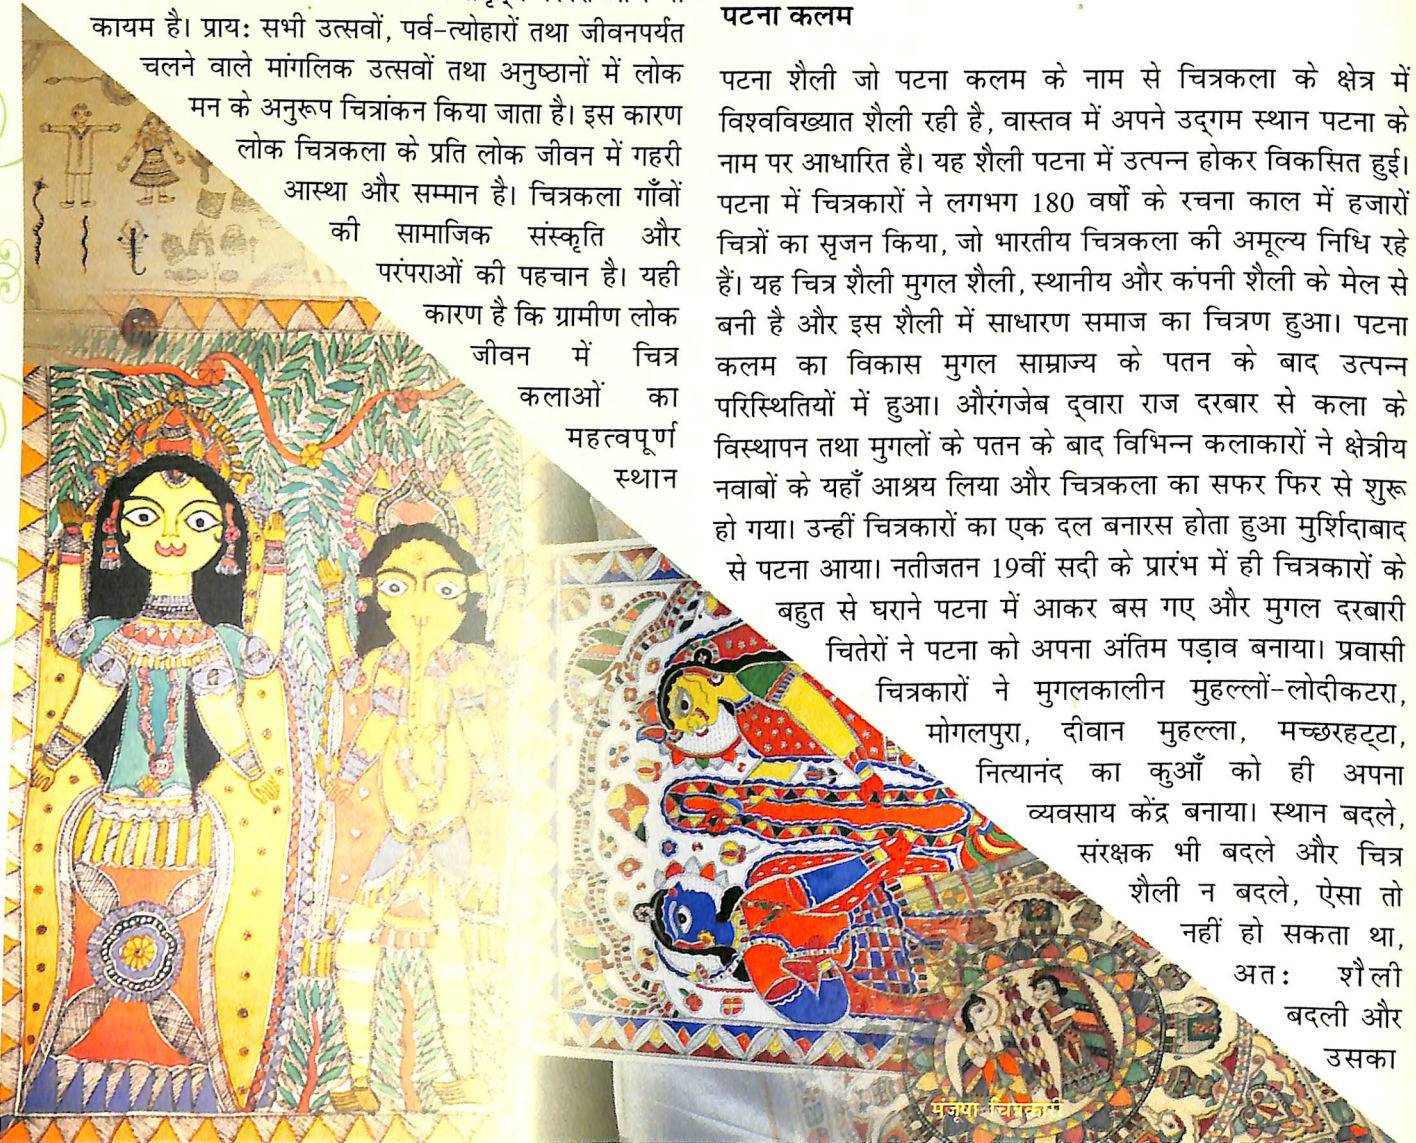 कायम है। प्राय: सभी उत्सवों, पर्व-त्योहारों तथा जीवनपर्यत
चलने वाले मांगलिक उत्सवों तथा अनुष्ठानों में लोक
मन के अनुरूप चित्रांकन किया जाता है। इस कारण
लोक चित्रकला के प्रति लोक जीवन में गहरी
आस्था और सम्मान है। चित्रकला गाँवों
की सामाजिक संस्कृति और
परंपराओं की पहचान है। यही
कारण है कि ग्रामीण लोक
जीवन में चित्र
कलाओं का
महत्वपूर्ण
स्थान
पटना कलम
पटना शैली जो पटना कलम के नाम से चित्रकला के क्षेत्र में
विश्वविख्यात शैली रही है, वास्तव में अपने उद्गम स्थान पटना के
नाम पर आधारित है। यह शैली पटना में उत्पन्न होकर विकसित हुई।
पटना में चित्रकारों ने लगभग 180 वर्षों के रचना काल में हजारों
चित्रों का सृजन किया, जो भारतीय चित्रकला की अमूल्य निधि रहे
हैं। यह चित्र शैली मुगल शैली, स्थानीय और कंपनी शैली के मेल से
बनी है और इस शैली में साधारण समाज का चित्रण हुआ। पटना
कलम का विकास मुगल साम्राज्य के पतन के बाद उत्पन्न
परिस्थितियों में हुआ। औरंगजेब द्वारा राज दरबार से कला के
विस्थापन तथा मुगलों के पतन के बाद विभिन्न कलाकारों ने क्षेत्रीय
नवाबों के यहाँ आश्रय लिया और चित्रकला का सफर फिर से शुरू
हो गया। उन्हीं चित्रकारों का एक दल बनारस होता हुआ मुर्शिदाबाद
से पटना आया। नतीजतन 19वीं सदी के प्रारंभ में ही चित्रकारों के
बहुत से घराने पटना में आकर बस गए और मुगल दरबारी
चितेरों ने पटना को अपना अंतिम पड़ाव बनाया। प्रवासी
चित्रकारों ने मुगलकालीन मुहल्लों-लोदीकटरा,
मोगलपुरा, दीवान मुहल्ला, मच्छरहट्टा,
नित्यानंद का कुआँ को ही अपना
व्यवसाय केंद्र बनाया। स्थान बदले,
संरक्षक भी बदले और चित्र
शैली न बदले, ऐसा तो
नहीं हो सकता था,
अत: शैली
बदली और
उसका
मंजूषा चित्रकारी